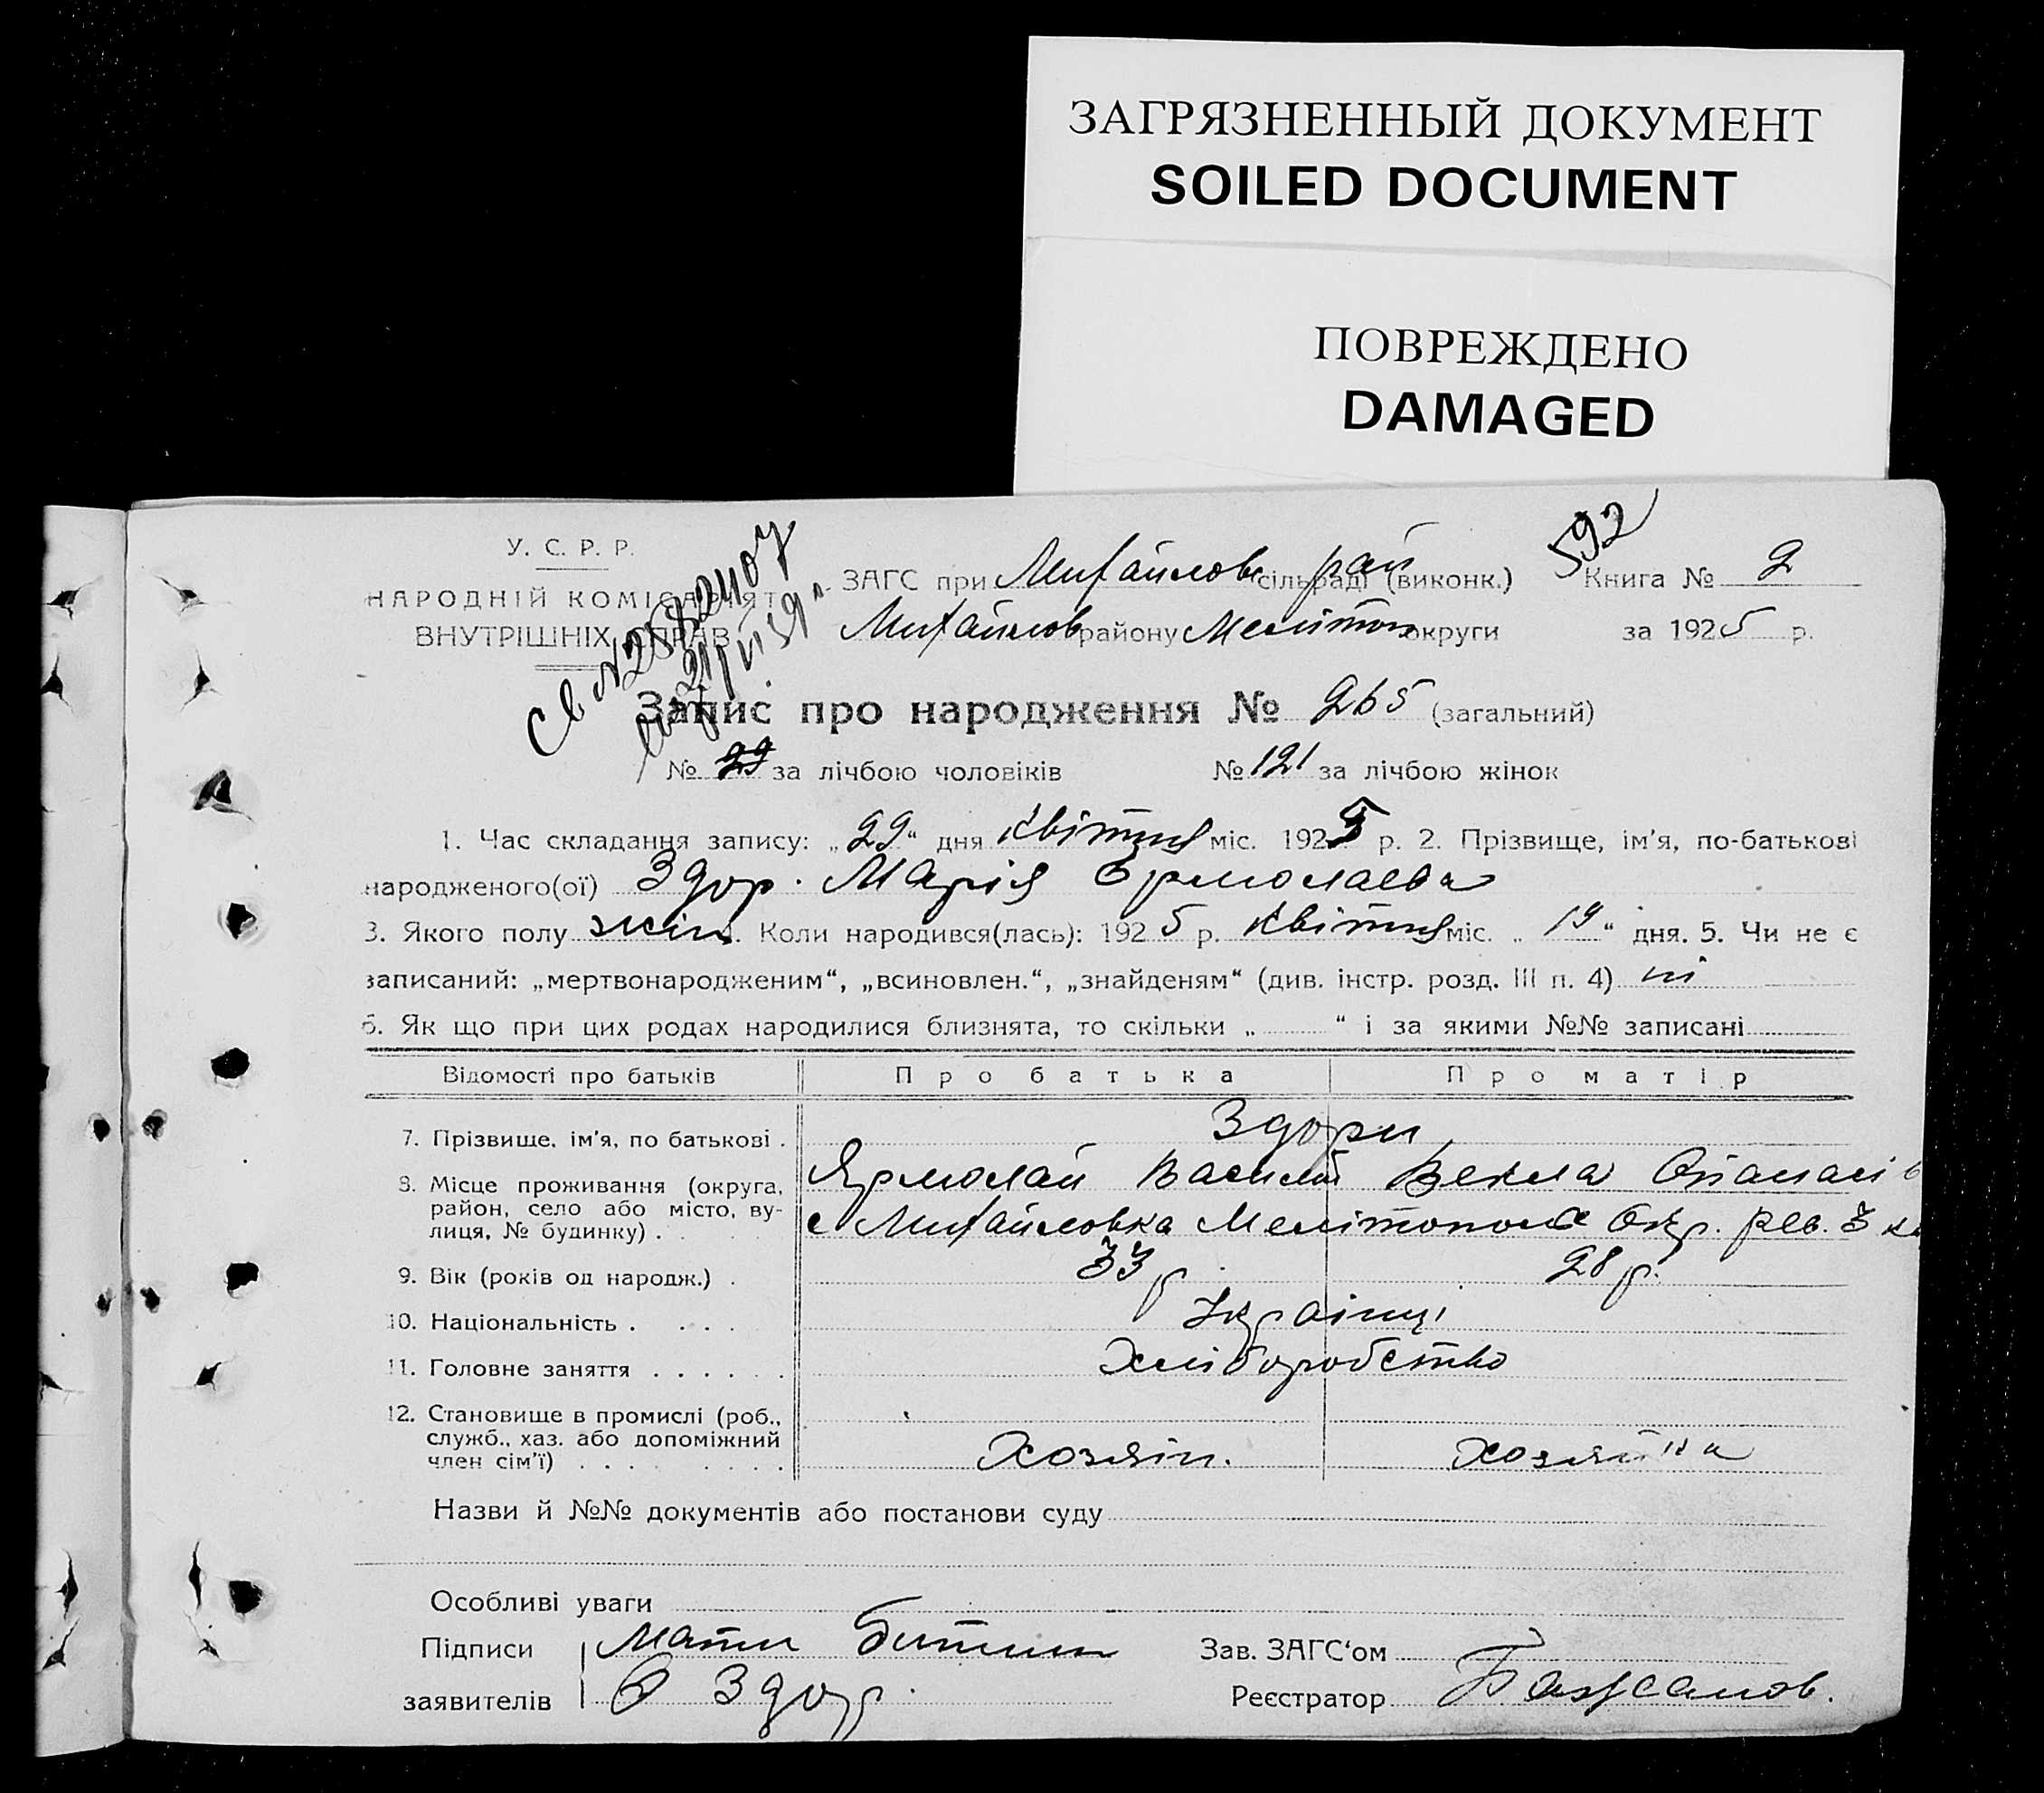 ЗАГРЯЗНЕННЫЙ ДОКУМЕНТ
SOILED DOCUMENT
ПОВРЕЖДЕНО
DAMAGED
592
У. С. Р. Р.
НАРОДНІЙ КОМІСАРІЯТ
ВНУТРІШНІХ СПРАВ
ЗАГС при Михайлов сільраді рай (виконк.) Книга № 2
Михайлов району Мелітоп округи за 1925 р.
Запис про народження № 265 (загальний)
№ 29 за лічбою чоловіків № 121 за лічбою жінок
1. Час складання запису: „29“ дня квітня міс. 1925 р. 2. Прізвище, ім'я, по-батькові
народженого(ої) Здор. Марія Ермолаева
3. Якого полу жін. Коли народився(лась): 1925 р. квітня міс. „19“ дня. 5. Чи не є
записаний: „мертвонародженим“, „всиновлен.“, „знайденям“ (див. інстр. розд. III п. 4) ні
6. Як що при цих родах народилися близнята, то скільки „ “ і за якими №№ записані
Відомості про батьків Про батька Про матір
7. Прізвище, ім'я, по батькові . Здори
Ярмолай Василів Векла Опанасів
8. Місце проживання (округа, район, село або місто, вулиця, № будинку) . с Михайловка Мелітопольс Окр.
9. Вік (років од народж.) . 33 р 28 р.
10. Національність . . . . Українці
11. Головне заняття . . . . . . Хліборобство
12. Становище в промислі (роб.,
служб., хаз. або допоміжний
член сім'ї) . . . . . . . . . Хозяїн. Хозяйка
Назви й №№ документів або постанови суду
Особливі уваги
Підписи Мати Зав. ЗАГС'ом
заявителів Здор. Реєстратор Бажанов.